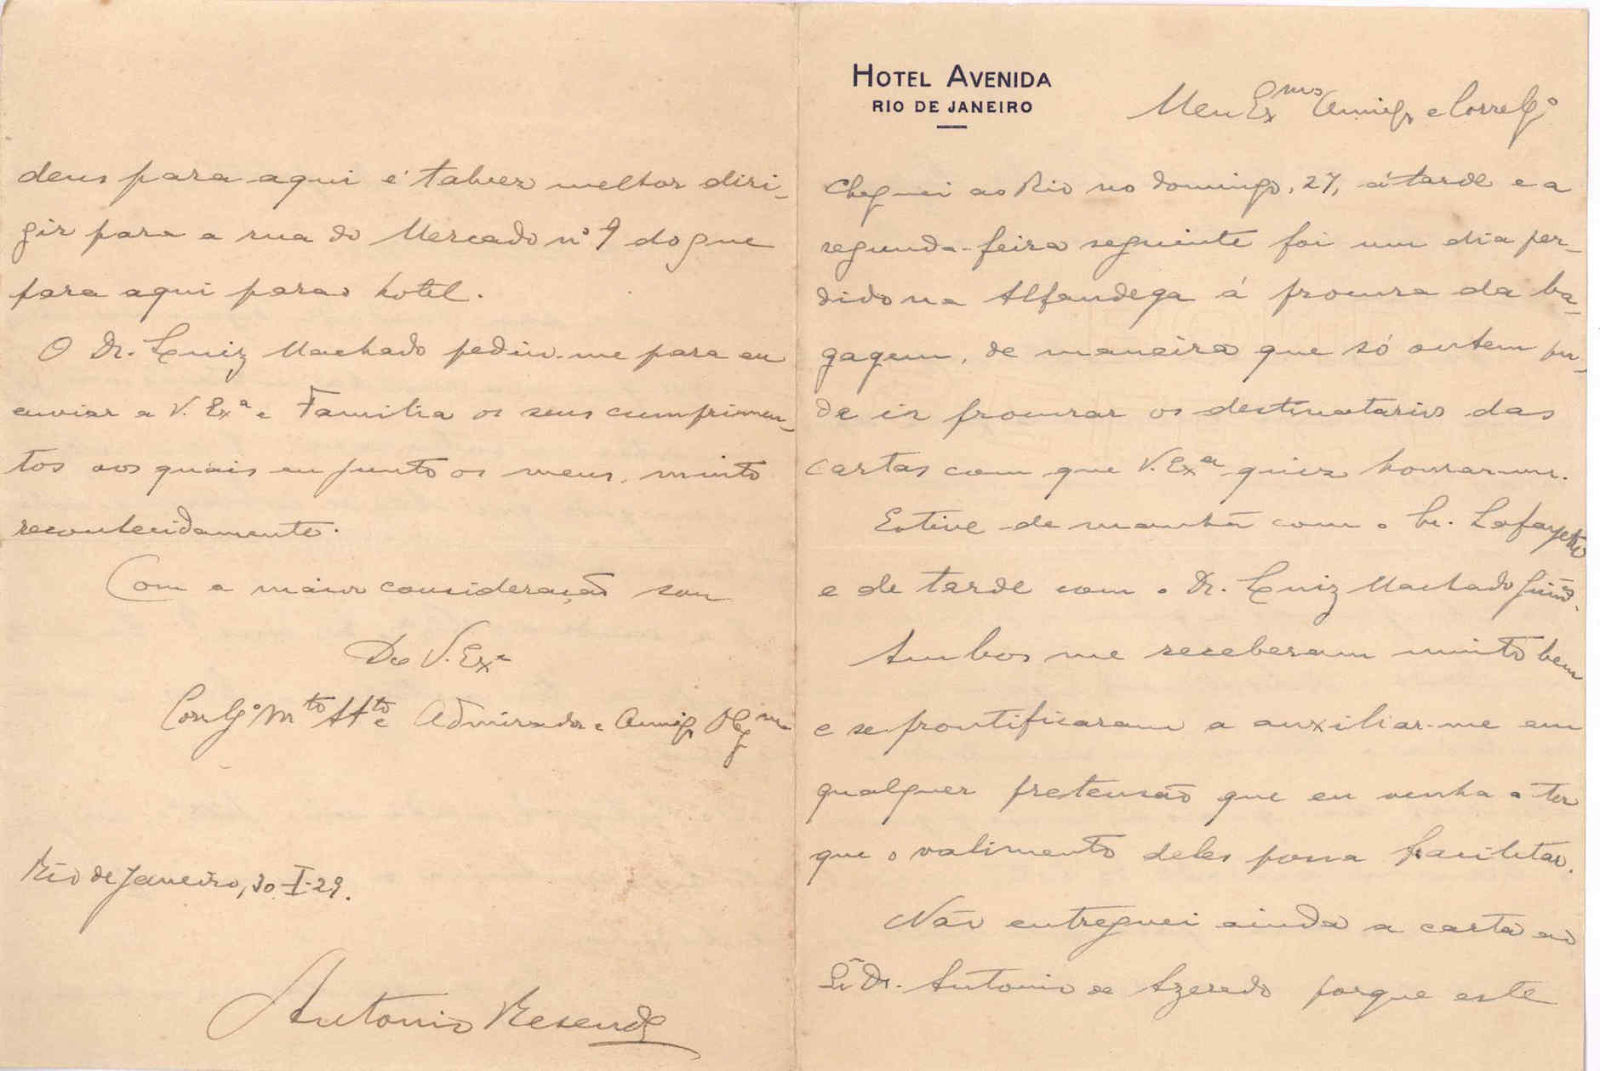 HOTEL AVENIDA
RIO DE JANEIRO
Meu Exmo Amigo e Correlgo
Cheguei ao Rio no domingo, 27, á tarde e a
segunda-feira seguinte foi um dia per-
dido na Alfandega á procura da ba-
gagem, de maneira que só ontem pu-
de ir procurar os destinatarios das
cartas com que V. Exa quiz honrar-me.
Estive de manhã com o Lafayette
e de tarde com o Dr. Luiz Machado Guims.
Ambos me receberam muito bem
e se prontificaram a auxiliar-me em
qualquer pretensão que eu venha a ter
que o valimento deles possa facilitar.
Não entreguei ainda a carta ao
Sr Dr. Antonio de Azeredo porque este
deus para aqui é talvez melhor diri-
gir para a rua do Mercado nº 9 do que
para aqui para o hotel.
O Dr. Luiz Machado pediu-me para eu
enviar a V. Exa e Familia os seus cumprimen-
tos aos quais eu junto os meus, muito
reconhecidamente.
Com a maior consideração sou
De V. Exa
Corlgo Mto Atto e Admirador e Amigo Obgmo
Rio de Janeiro, 30-I-29.
Antonio Resende